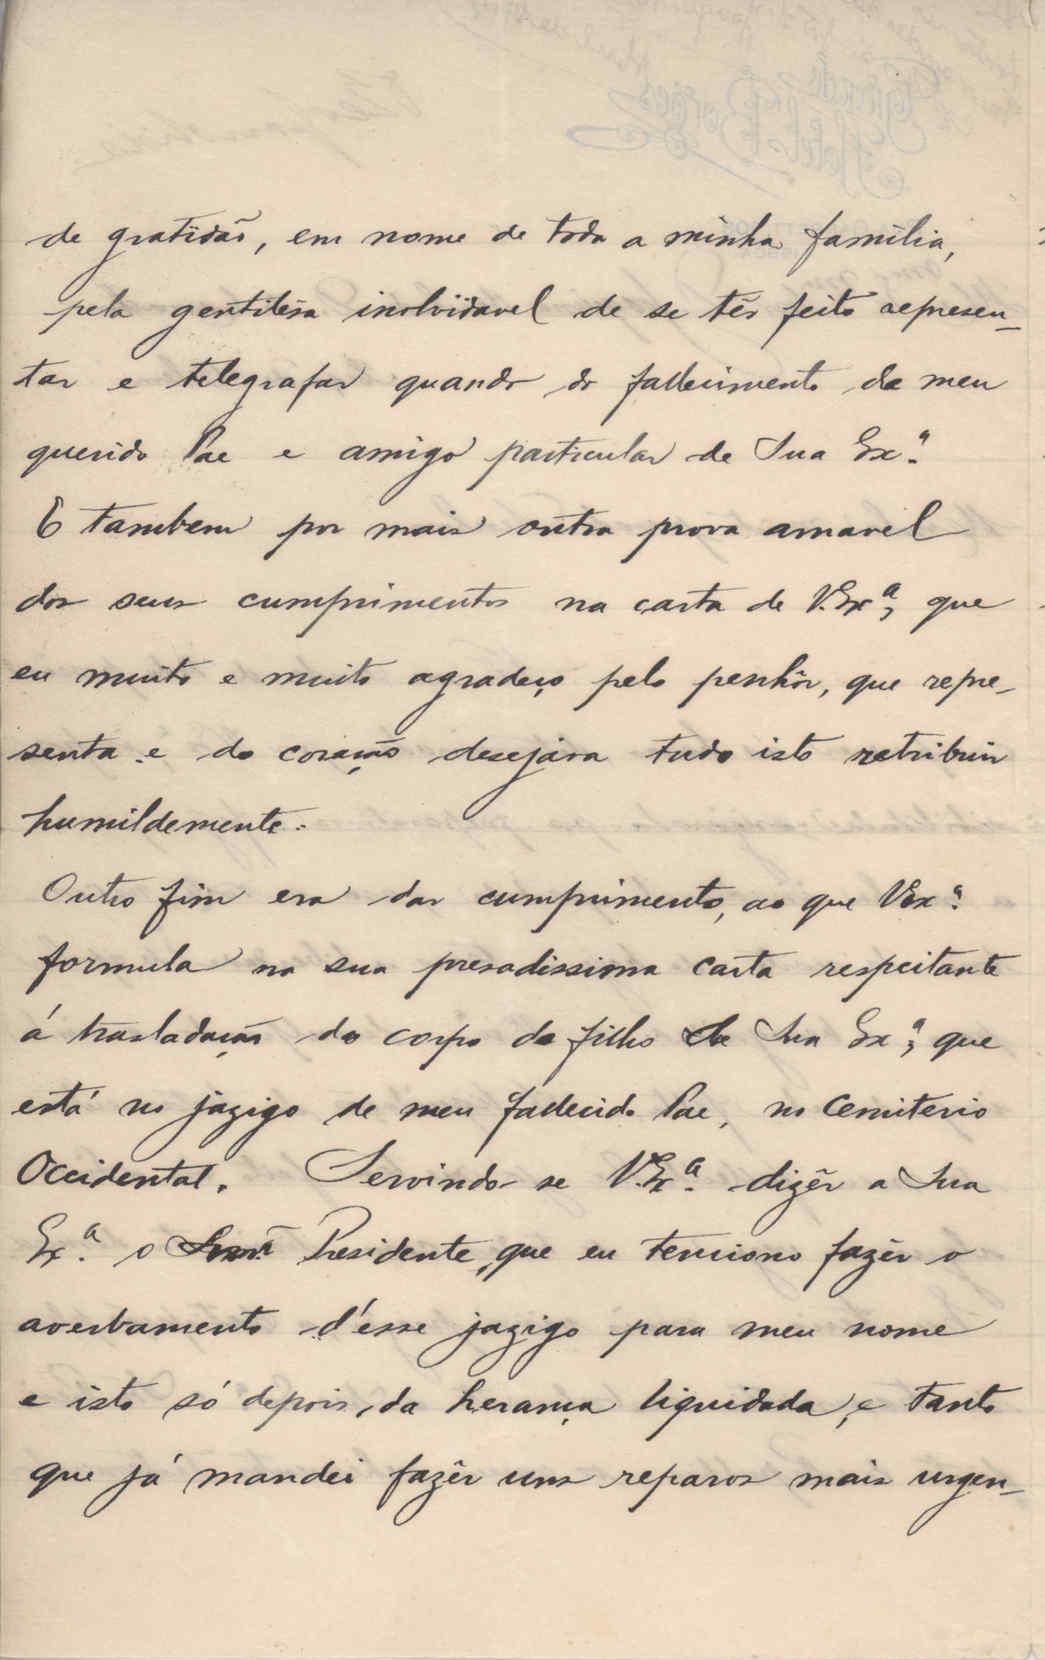 de gratidão, em nome de toda a minha familia,
pela gentilêsa inolvidavel de se têr feito represen-
tar e telegrafar quando do fallecimento de meu
querido Pae e amigo particular de Sua Ex.ª
E tambem por mais outra prova amavel
dos seus cumprimentos na carta de V.Exª, que
eu muito e muito agradeço pelo penhôr, que repre-
senta e do coração desejára tudo isto retribuir
humildemente.
Outro fim era dar cumprimento, ao que VExª.
formula na sua presadissima carta respeitante
á trasladação do corpo do filho de Sua Exª, que
está no jazigo de meu fallecido Pae, no Cemiterio
Occidental. Servindo-se V.Exª. dizêr a Sua
Exª. o Presidente, que eu tenciono fazêr o
averbamento d'ésse jazigo para meu nome
e isto só depois, da herança liquidada, e tanto
que já mandei fazêr uns reparos mais urgen-
Grande
Hotel Borges